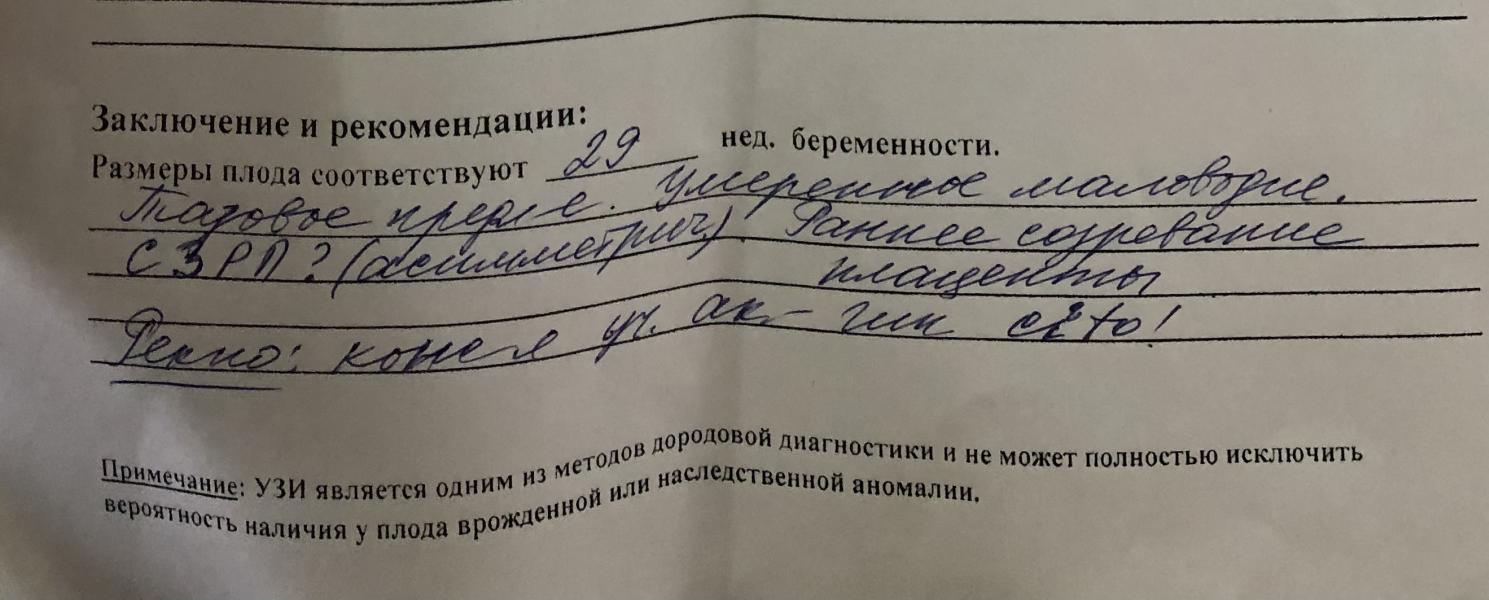 Заключение и рекомендации:
Размеры плода соответствуют 29 нед. беременности.
Тазовое предл-е. Умеренное маловодие.
СЗРП? (асимметрич) Раннее созревание
плаценты
Рек-но: конс-я уч. ак-гин cito!
Примечание: УЗИ является одним из методов дородовой диагностики и не может полностью исключить
вероятность наличия у плода врожденной или наследственной аномалии.